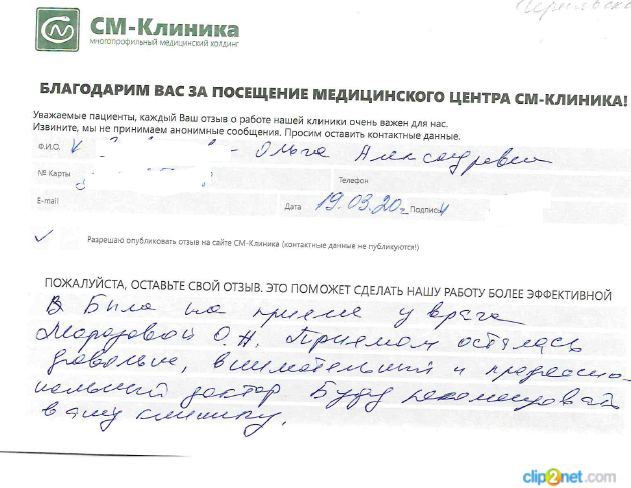 СМ-Клиника
многопрофильный медицинский холдинг
БЛАГОДАРИМ ВАС ЗА ПОСЕЩЕНИЕ МЕДИЦИНСКОГО ЦЕНТРА СМ-КЛИНИКА!
Уважаемые пациенты, каждый Ваш отзыв о работе нашей клиники очень важен для нас.
Извините, мы не принимаем анонимные сообщения. Просим оставить контактные данные.
Ф.И.О. Ольга Александровна
№ Карты Телефон
E-mail Дата 19.03.20г. Подпись
Разрешаю опубликовать отзыв на сайте СМ-Клиника (контактные данные не публикуются!)
ПОЖАЛУЙСТА, ОСТАВЬТЕ СВОЙ ОТЗЫВ. ЭТО ПОМОЖЕТ СДЕЛАТЬ НАШУ РАБОТУ БОЛЕЕ ЭФФЕКТИВНОЙ
Была на приеме у врача
Морозовой О.Н. Приемом осталась
довольна, внимательный и профессио-
нальный доктор Буду рекомендовать
вашу клинику.
clip2net.com